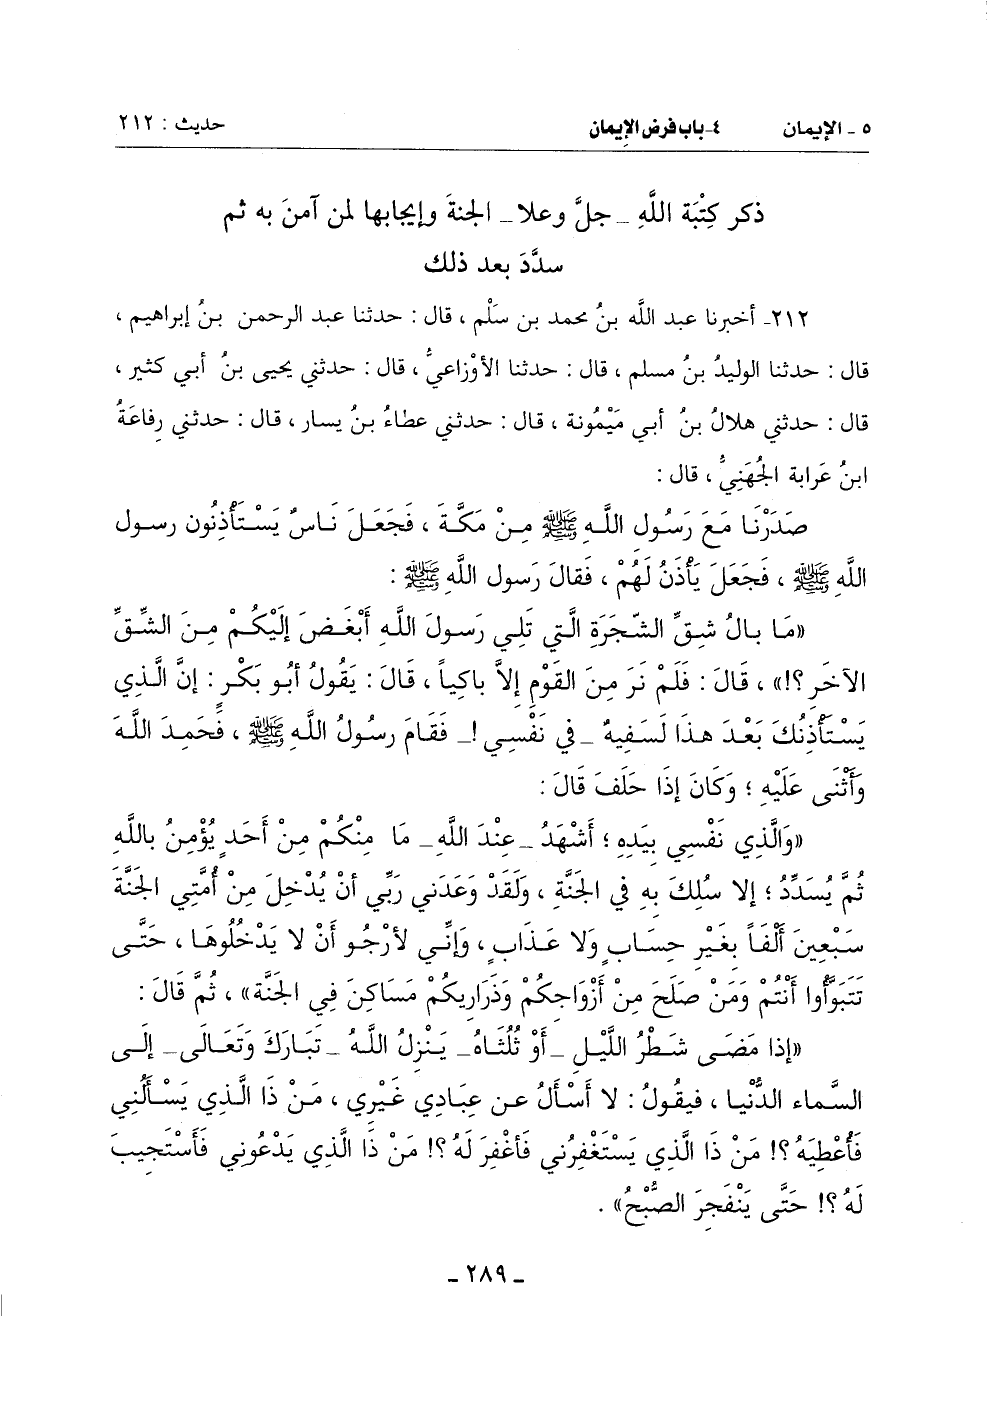 ٥ ـ الإيمان ٤ـ باب فرض الإيمان حديث : ٢١٢
ذكر كِتْبَة اللَّهِ ـ جلَّ وعلا ـ الجنةَ وإيجابها لمن آمنَ به ثم
سدَّدَ بعد ذلك
٢١٢ـ أخبرنا عبد اللَّه بنُ محمد بن سَلْم ، قال : حدثنا عبد الرحمن بنُ إبراهيم ،
قال : حدثنا الوليدُ بنُ مسلم ، قال : حدثنا الأوْزاعيُّ ، قال : حدثني يحيى بنُ أبي كثير ،
قال : حدثني هلالُ بنُ أبي مَيْمُونة ، قال : حدثني عطاءُ بنُ يسار ، قال : حدثني رِفاعَةُ
ابنُ عَرابة الجُهَنِيُّ ، قال :
صَدَرْنَا مَعَ رَسُول اللَّهِ ﷺ مِنْ مَكَّةَ ، فَجَعَلَ نَاسٌ يَسْتَأْذِنُون رسول
اللَّهِ ﷺ ، فَجَعَلَ يَأْذَنُ لَهُمْ ، فَقالَ رَسول اللَّهِ ﷺ :
«مَا بالُ شِقِّ الشَّجَرَةِ الَّتي تَلِي رَسولَ اللَّهِ أَبْغَضَ إلَيْكُمْ مِنَ الشِّقِّ
الآخَرِ ؟!» ، قَالَ : فَلَمْ نَرَ مِنَ القَوْمِ إلاَّ باكياً ، قَالَ : يَقُولُ أبُو بَكْرٍ : إنَّ الَّذِي
يَسْتَأْذِنُكَ بَعْدَ هذَا لَسَفِيهٌ ـ في نَفْسِي ! ـ فَقَامَ رسُولُ اللَّهِ ﷺ ، فَحَمِدَ اللَّهَ
وَأَثْنَى عَلَيْهِ ؛ وَكَانَ إذَا حَلَفَ قَالَ :
«وَالَّذِي نَفْسِي بِيَدِهِ ؛ أَشْهَدُ ـ عِنْدَ اللَّهِ ـ مَا مِنْكُمْ مِنْ أَحَدٍ يُؤْمِنُ باللَّهِ
ثُمَّ يُسَدِّدُ ؛ إلا سُلِكَ بِهِ فِي الجَنَّةِ ، وَلَقَدْ وَعَدَني رَبِّي أنْ يُدْخِلَ مِنْ أُمَّتِي الجَنَّةَ
سَبْعِينَ أَلْفَاً بِغَيْرِ حِسَابٍ وَلا عَذَابٍ ، وَإنِّي لأرْجُو أَنْ لا يَدْخُلُوهَا ، حَتَّى
تَتَبَوَّأُوا أَنْتُمْ وَمَنْ صَلَحَ مِنْ أَزْوَاجِكُمْ وَذَرَارِيكُمْ مَسَاكِنَ فِي الجَنَّة» ، ثُمَّ قَالَ :
«إذا مَضَى شَطْرُ اللَّيْلِ ـ أَوْ ثُلُثَاهُ ـ يَنْزِلُ اللَّهُ ـ تَبَارَكَ وَتَعَالَى ـ إلَى
السَّماء الدُّنْيا ، فيقُولُ : لا أَسْأَلُ عن عِبَادِي غَيْرِي ، مَنْ ذَا الَّذِي يَسْأَلُنِي
فَأُعْطِيَهُ ؟! مَنْ ذَا الَّذِي يَسْتَغْفِرُني فَأغْفِرَ لَهُ ؟! مَنْ ذَا الَّذِي يَدْعُونِي فَأَسْتَجِيبَ
لَهُ ؟! حَتَّى يَنْفَجِرَ الصُّبْحُ» .
ـ ٢٨٩ ـ